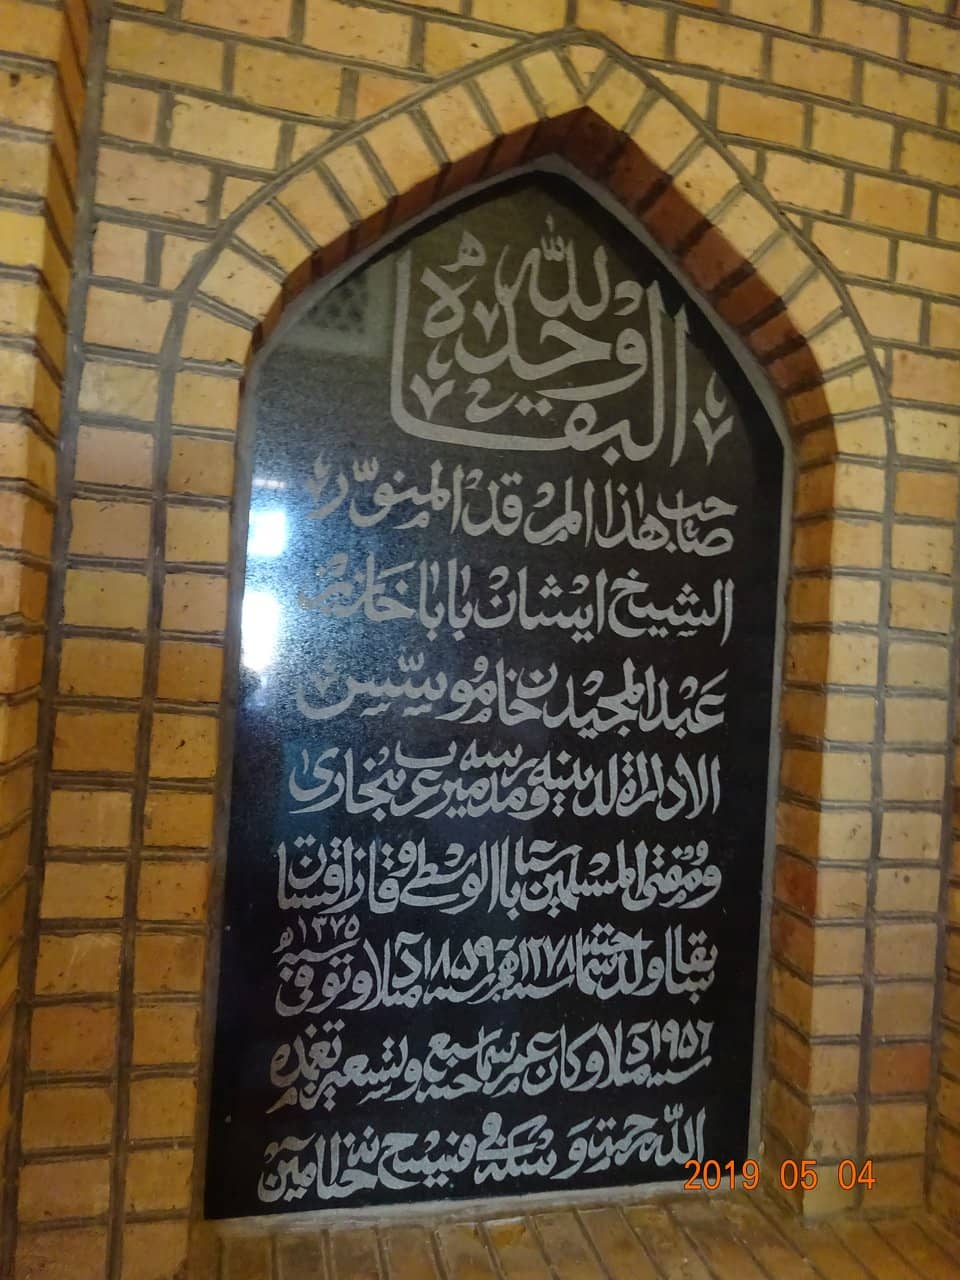 البقاء لله وحده
صاحب هذا المرقد المنور
الشيخ ايشان باباخان بن
عبدالمجيدخان مؤسس
الادارة الدينيه ومدرسه ميرعرب بخارى
ومفتى المسلمين باسيا الوسطى وقازاقستان
سابقا ولد سنة ١٢٧٨ هـ ١٨٥٩ ميلاد وتوفى سنة ١٣٧٥ هـ
سنة ١٩٥٦ ميلاد وكان عمر سماحته سبع وتسعين تغمده
الله برحمته وسكنه فى فسيح جنانه امين
2019 05 04